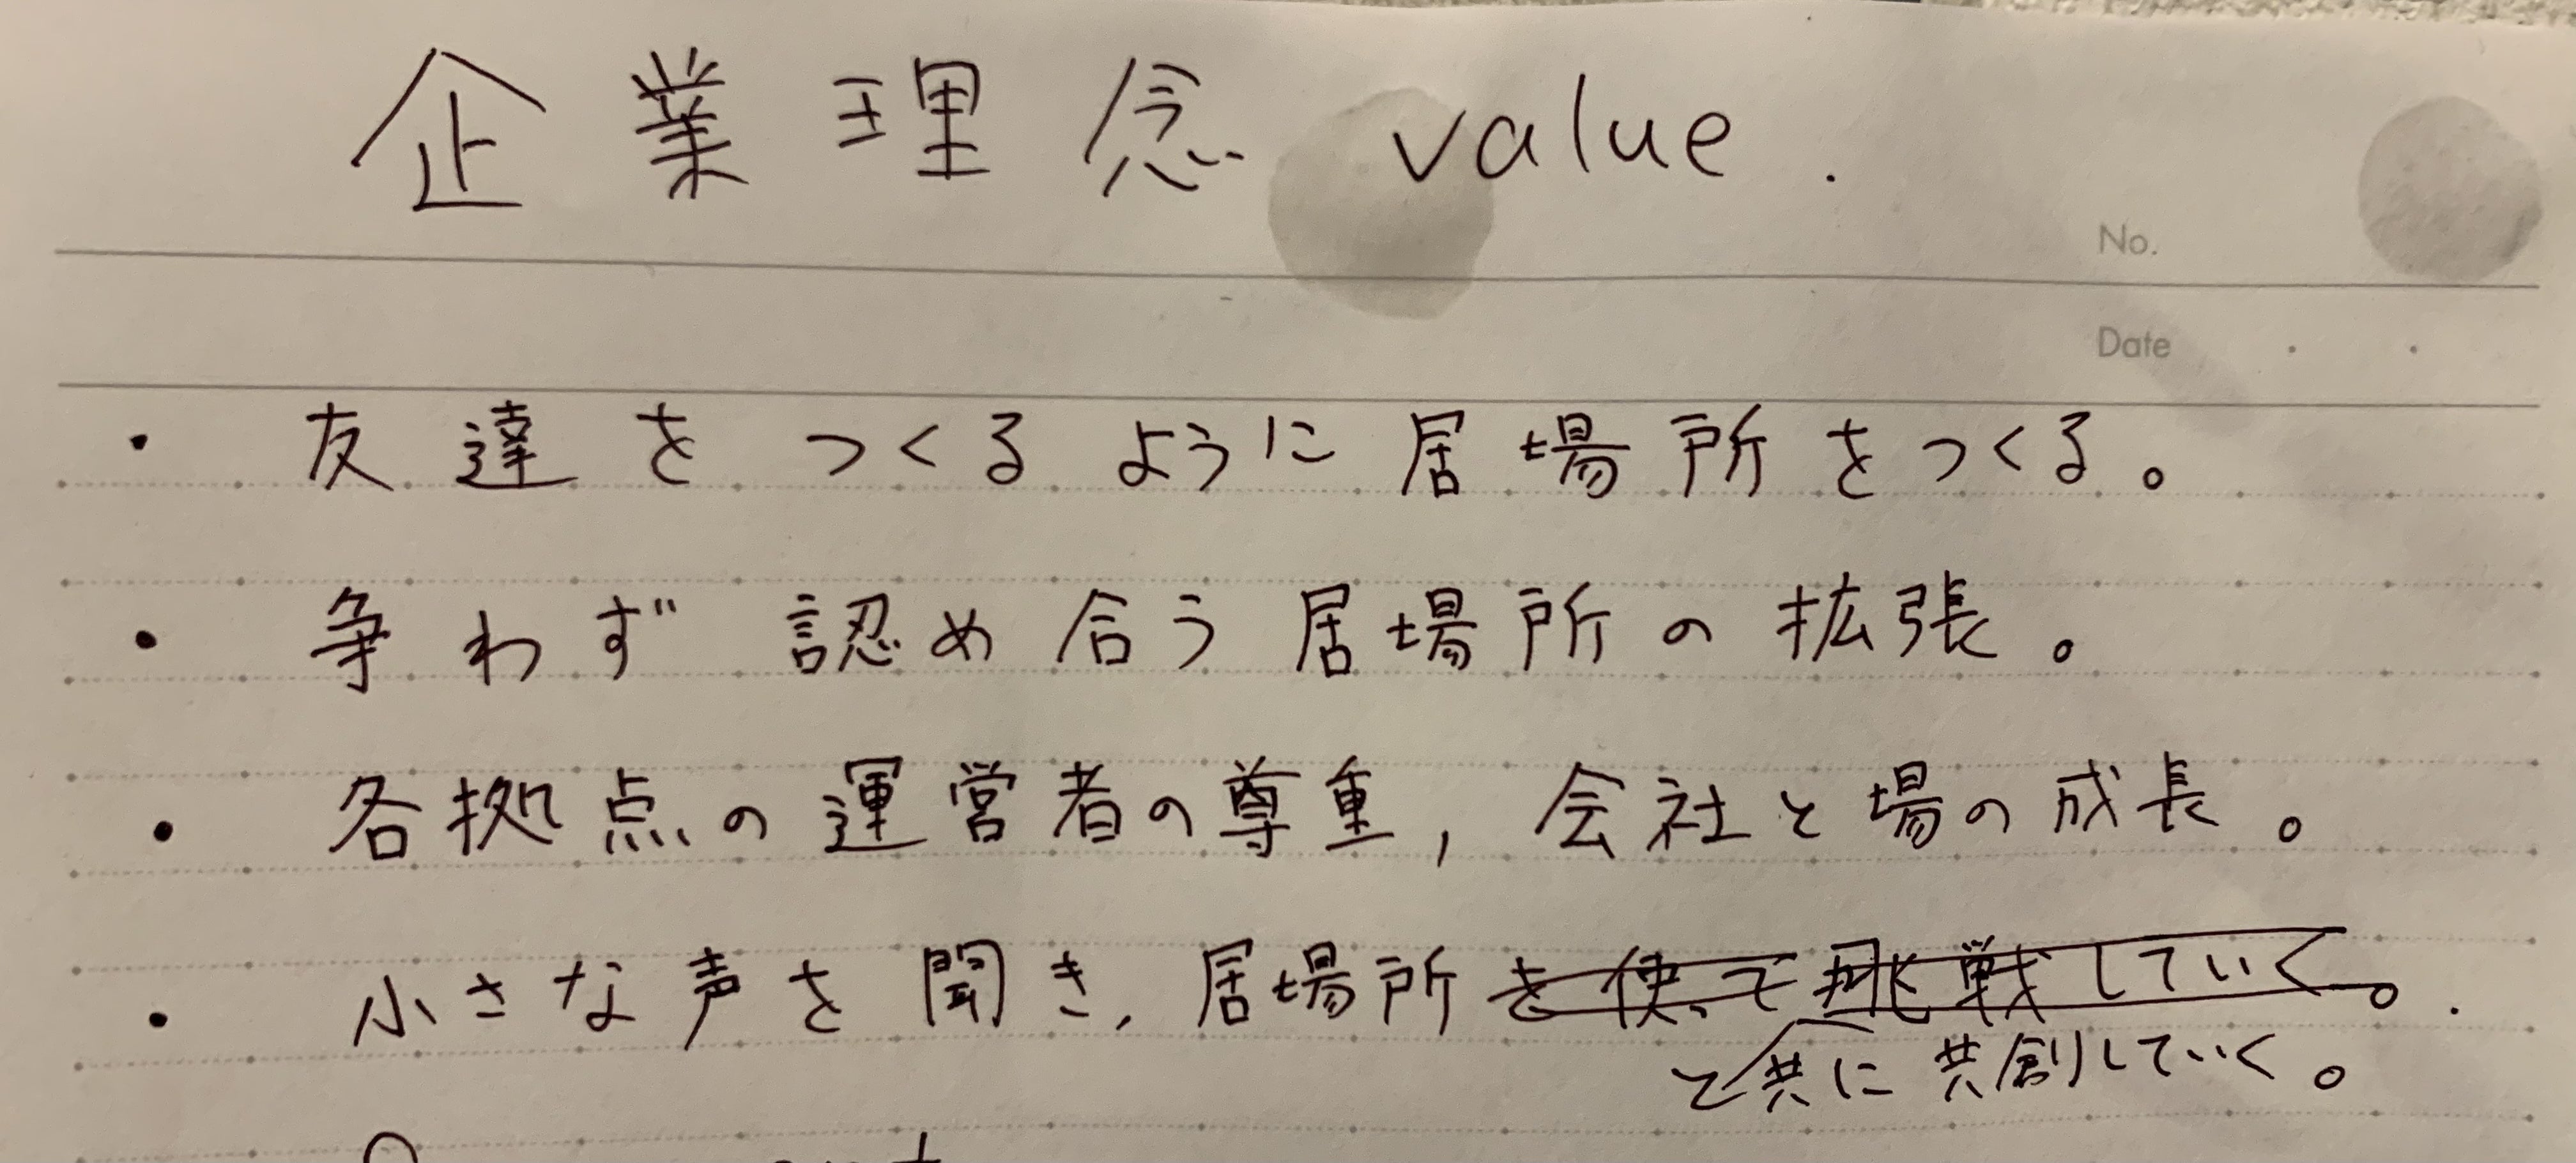 企業理念 value.
No.
Date
・友達をつくるように居場所をつくる。
・争わず認め合う居場所の拡張。
・各拠点の運営者の尊重,会社と場の成長。
・小さな声を聞き,居場所を使って挑戦していく。.
と共に共創していく。